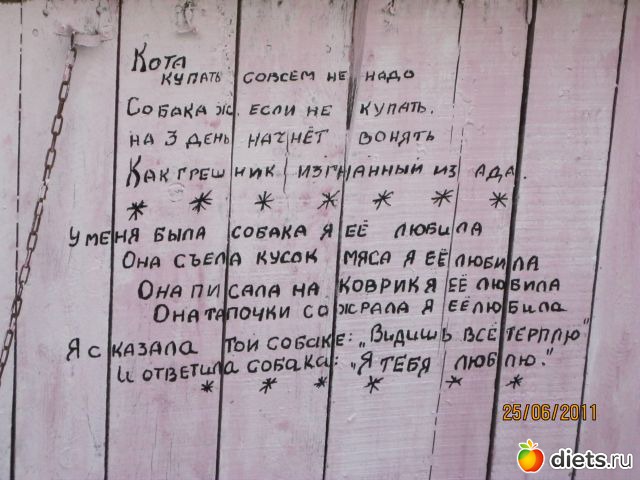 Кота
купать совсем не надо
Собака ж. если не купать.
на 3 день начнёт вонять
Как грешник изгнанный из ада.
* * * * * * *
У меня была собака я её любила
Она съела кусок мяса я её любила
Она писала на коврик я её любила
Она тапочки сожрала я её любила
Я сказала той собаке: „Видишь всё терплю"
И ответила собака: „Я тебя люблю."
* * * * * *
25/06/2011
diets.ru